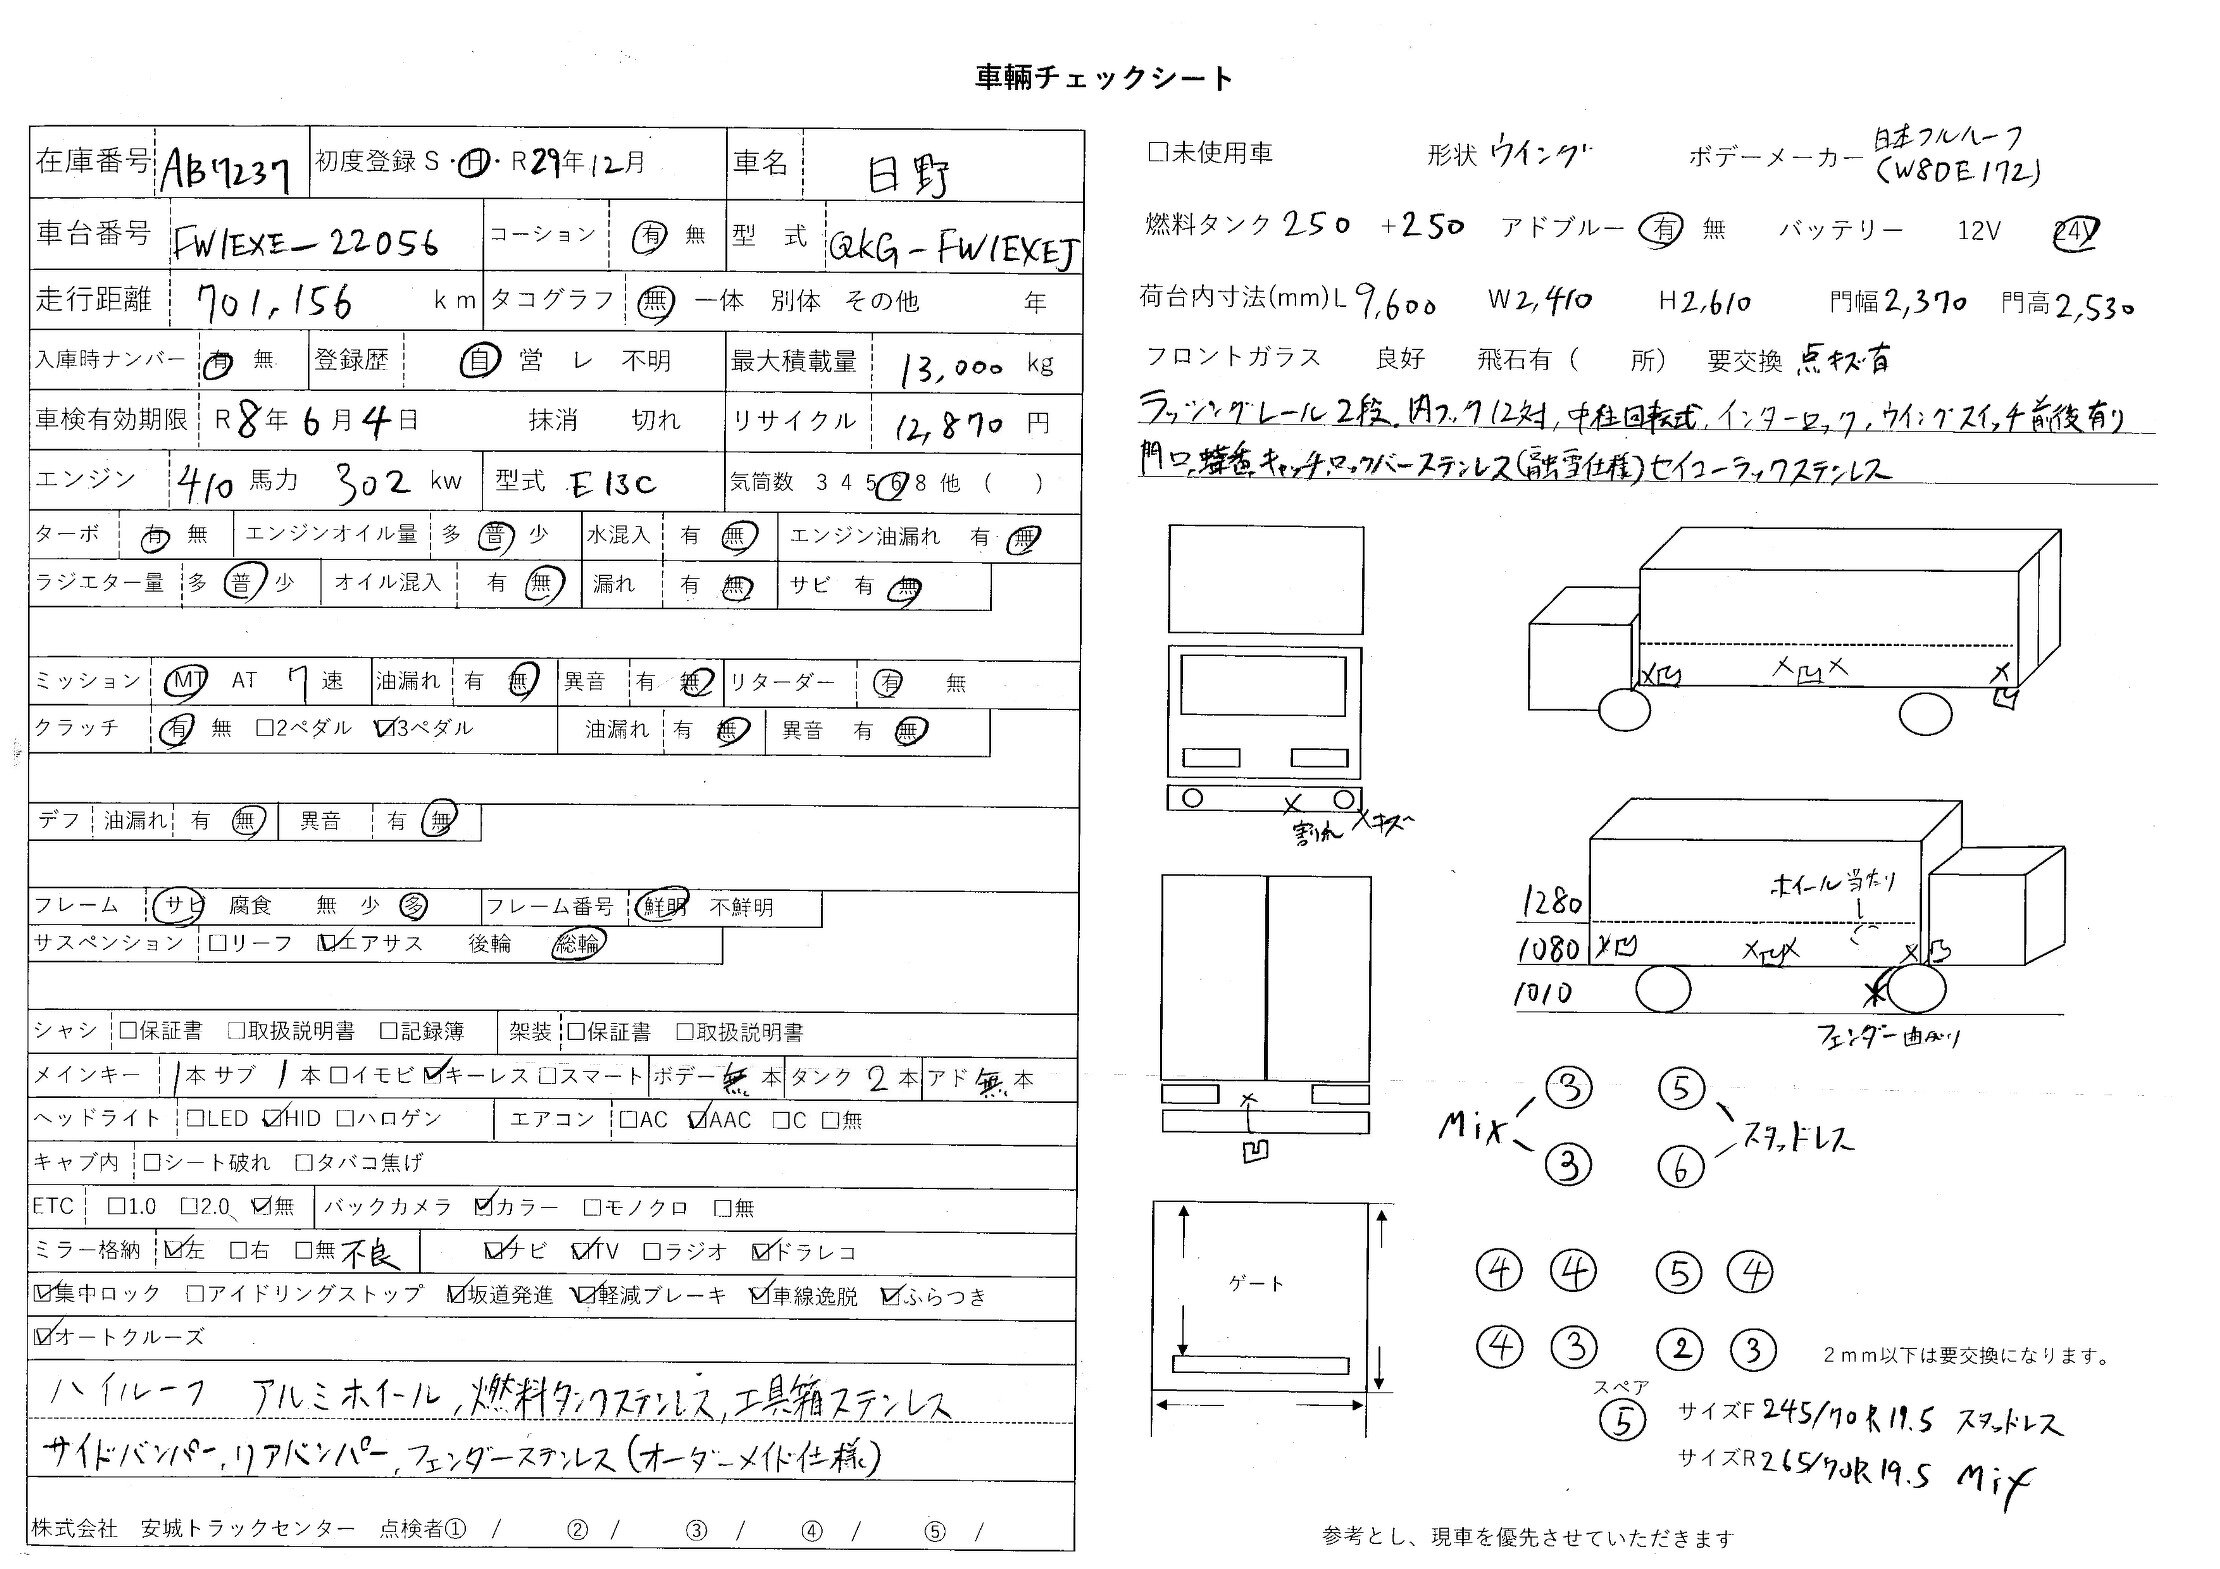 車輛チェックシート
在庫番号 AB7237 初度登録 S・H・R 29年 12月 車名 日野
車台番号 FW1EXE-22056 コーション 有 無 型式 QKG-FW1EXEJ
走行距離 701,156 km タコグラフ 無 一体 別体 その他 年
入庫時ナンバー 有 無 登録歴 自 営 レ 不明 最大積載量 13,000 kg
車検有効期限 R8年6月4日 抹消 切れ リサイクル 12,870 円
エンジン 410 馬力 302 kw 型式 E13C 気筒数 3 4 5 6 8 他 ( )
ターボ 有 無 エンジンオイル量 多 普 少 水混入 有 無 エンジン油漏れ 有 無
ラジエター量 多 普 少 オイル混入 有 無 漏れ 有 無 サビ 有 無
ミッション MT AT 7 速 油漏れ 有 無 異音 有 無 リターダー 有 無
クラッチ 有 無 □2ペダル ☑3ペダル 油漏れ 有 無 異音 有 無
デフ 油漏れ 有 無 異音 有 無
フレーム サビ 腐食 無 少 多 フレーム番号 鮮明 不鮮明
サスペンション □リーフ ☑エアサス 後輪 総輪
シャシ □保証書 □取扱説明書 □記録簿 架装 □保証書 □取扱説明書
メインキー 1本 サブ 1本 □イモビ ☑キーレス □スマート ボデー 無 本 タンク 2 本 アド 無 本
ヘッドライト □LED ☑HID □ハロゲン エアコン □AC ☑AAC □C □無
キャブ内 □シート破れ □タバコ焦げ
ETC □1.0 □2.0 ☑無 バックカメラ ☑カラー □モノクロ □無
ミラー格納 ☑左 □右 □無 不良 ☑ナビ ☑TV □ラジオ ☑ドラレコ
☑集中ロック □アイドリングストップ ☑坂道発進 ☑軽減ブレーキ ☑車線逸脱 ☑ふらつき
☑オートクルーズ
ハイルーフ アルミホイール,燃料タンクステンレス,工具箱ステンレス
サイドバンパー,リアバンパー,フェンダーステンレス(オーダーメイド仕様)
株式会社 安城トラックセンター 点検者① / ② / ③ / ④ / ⑤ /
□未使用車 形状 ウイング ボデーメーカー 日本フルハーフ
(W8DE172)
燃料タンク 250 +250 アドブルー 有 無 バッテリー 12V 24V
荷台内寸法(mm) L 9,600 W 2,410 H 2,610 門幅 2,370 門高 2,530
フロントガラス 良好 飛石有 ( 所) 要交換 点キズ有
ラッシングレール2段,内フック12対,中柱回転式,インターロック,ウイングスイッチ前後有り
門口,蝶番,キャッチ,ロックバーステンレス(融雪仕様)セイコーラックステンレス
X凹 X凹X X
凹
X
割れ Xキズ
ホイール当たり
1280
1080 X凹 X凹X X凹
1010 X
フェンダー曲がり
X
凹
③ ⑤
Mix スタッドレス
③ ⑥
ゲート
④ ④ ⑤ ④
④ ③ ② ③ 2mm以下は要交換になります。
スペア
⑤ サイズF 245/70R19.5 スタッドレス
サイズR 265/70R19.5 Mix
参考とし、現車を優先させていただきます